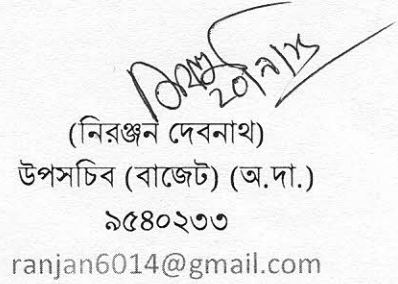 ২০/৯/১৫
(নিরঞ্জন দেবনাথ)
উপসচিব (বাজেট) (অ.দা.)
৯৫৪০২৩৩
ranjan6014@gmail.com